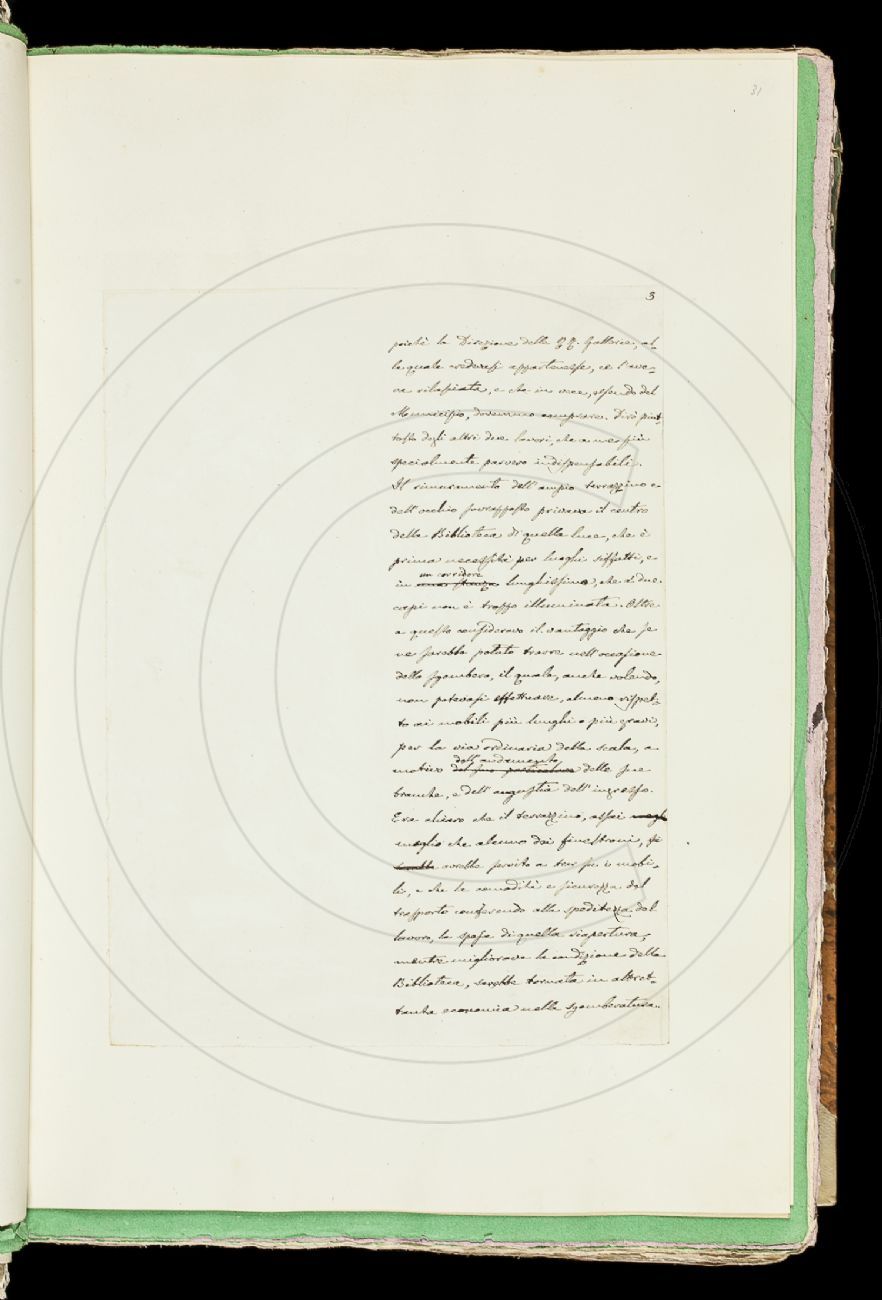 31
3
poichè la Direzione delle RR. Gallerie, al-
la quale credevasi appartenesse, ce l'ave-
va rilasciata, e che in vece, essendo del
Municipio, dovemmo comprare. Dirò piut-
tosto degli altri due lavori, che a me più
specialmente parvero indispensabili.
Il rimuramento dell'ampio terrazzino e
dell'occhio sovrapposto privava il centro
della Biblioteca di quella luce, che è
prima necessità per luoghi siffatti, e
un corridore
in una stanza lunghissimo, che a' due
capi non è troppo illuminata. Oltre
a questo consideravo il vantaggio che se
ne sarebbe potuto trarre nell'occasione
dello sgombero, il quale, anche volendo,
non potevasi effettuare, almeno rispet-
to ai mobili più lunghi e più gravi,
per la via ordinaria della scala, a
dell'andamento
motivo del suo particolare delle sue
branche, e dell'angustia dell'ingresso.
Era chiaro che il terrazzino, assai megl
meglio che alcuno dei finestroni, si
sarebbe avrebbe servito a trar su i mobi-
li, e che la comodità e sicurezza del
trasporto conferendo alla speditezza del
lavoro, la spesa di quella riapertura,
mentre migliorava la condizione della
Biblioteca, sarebbe tornata in altret-
tanta economia nella sgomberatura.